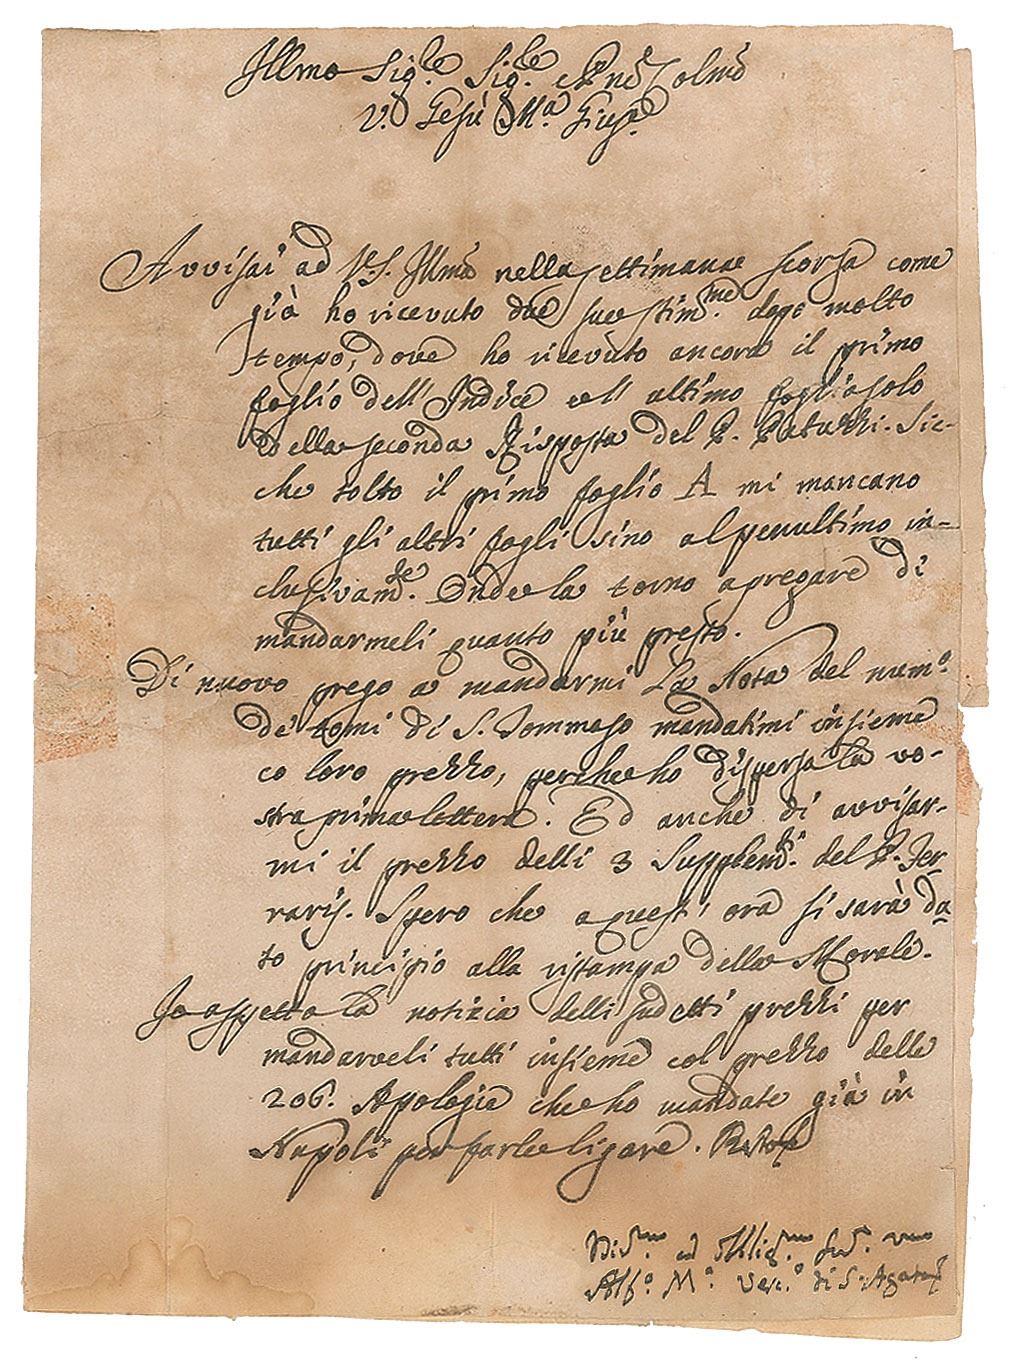 Illmo Sig.re Sig.re e Pne Colmo
V. Gesù M.a Giusp.e
Avvisai ad V.S. Illma nella settimana scorsa come
già ho ricevuto due sue stim.me dopo molto
tempo, dove ho ricevuto ancora il primo
foglio dell'Indice e l'ultimo foglio solo
della seconda Risposta del P. Patuzzi. Sic-
che tolto il primo foglio A mi mancano
tutti gli altri fogli sino al penultimo in-
clusivam.te. Onde la torno a pregare di
mandarmeli quanto più presto.
Di nuovo prego a mandarmi la Nota del num.o
de' tomi di S. Tommaso mandatimi insieme
co loro prezzo, perche ho dispersa la vo-
stra prima lettera. Ed anche di avvisar-
mi il prezzo delli 3 Supplem.ti del P. Fer-
raris. Spero che a quest'ora si sarà da-
to principio alla ristampa della Morale.
Io aspetto la notizia delli sudetti prezzi per
mandarveli tutti insieme col prezzo delle
206. Apologie che ho mandate già in
Napoli per farle ligare. Resto
Div.mo ed Obblig.mo Ser.
Alf.o M.a Vesc.o di S. Agata